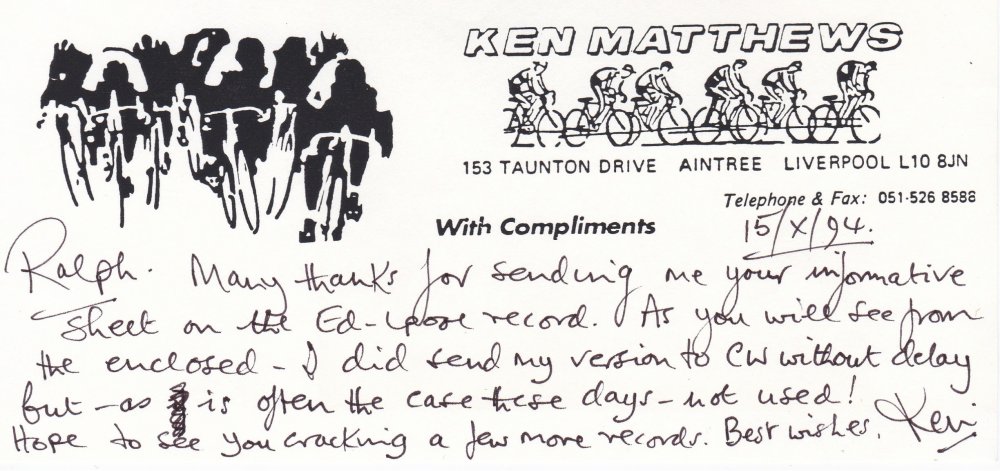 KEN MATTHEWS
153 TAUNTON DRIVE AINTREE LIVERPOOL L10 8JN
Telephone & Fax: 051-526 8588
With Compliments
15/X/94.
Ralph. Many thanks for sending me your informative
sheet on the Ed-Lpool record. As you will see from
the enclosed - I did send my version to CW without delay
but - as is often the case these days - not used!
Hope to see you cracking a few more records. Best wishes, Ken